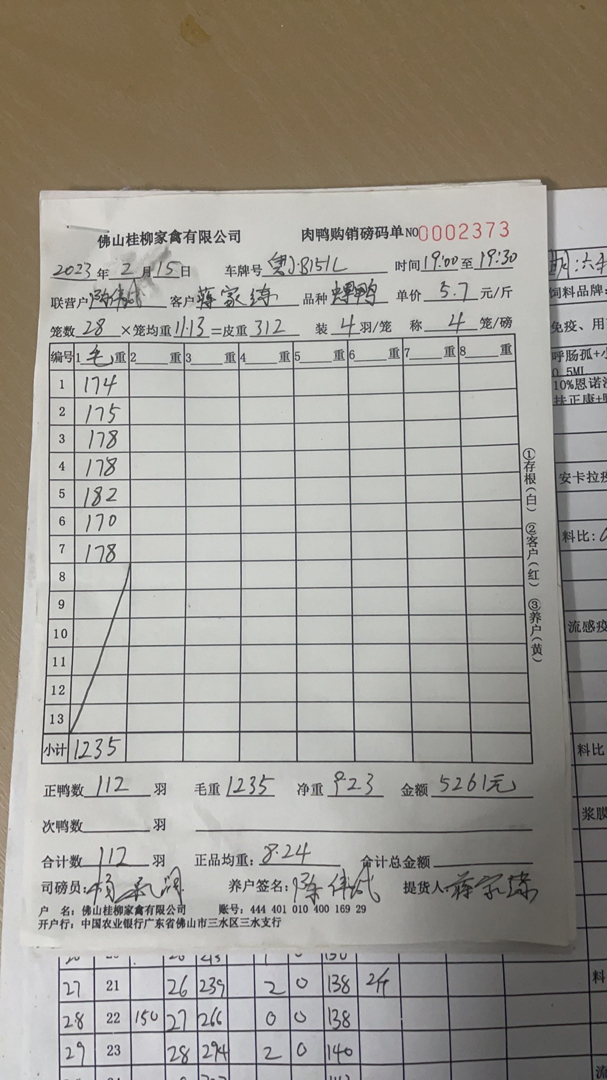 佛山桂柳家禽有限公司 肉鸭购销磅码单 NO 0002373
2023年2月15日 车牌号 粤J·B151L 时间 19:00至19:30
联营户 客户 蒋家 品种 鸭 单价 5.7 元/斤
笼数 28 ×笼均重 11.13 =皮重 312 装 4 羽/笼 称 4 笼/磅
编号 1 毛 重 2 重 3 重 4 重 5 重 6 重 7 重 8 重
1 174
2 175
3 178
4 178
5 182
6 170
7 178
8
9
10
11
12
13
小计 1235
①存根(白) ②客户(红) ③养户(黄)
正鸭数 112 羽 毛重 1235 净重 923 金额 5261元
次鸭数 羽
合计数 112 羽 正品均重: 8.24 合计总金额
司磅员: 养户签名: 陈伟 提货人 蒋家
户 名: 佛山桂柳家禽有限公司 账号: 444 401 010 400 169 29
开户行: 中国农业银行广东省佛山市三水区三水支行
饲料品牌:
免疫、用
呼肠孤+小
0.5ML
10%恩诺沙
扶正康+
安卡拉疫
料比:
流感疫
料比
浆膜
27 21 26 239 2 0 138 2斤
料
28 22 150 27 266 0 0 138
29 23 28 294 2 0 140
流